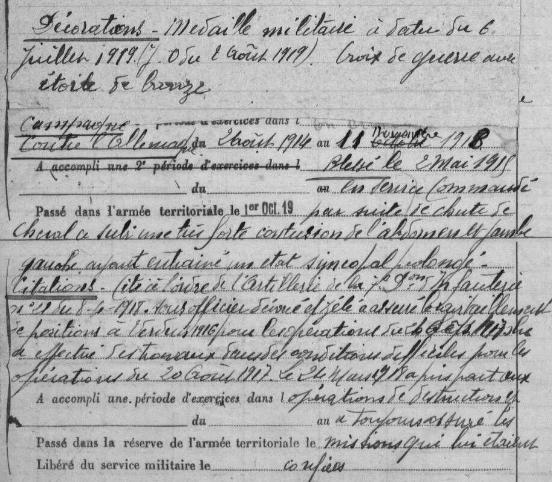 Décorations - Médaille militaire à dater du 6
Juillet 1919 (J. O du 2 Août 1919). Croix de guerre avec
étoile de bronze
Campagne période d'exercices dans l
Contre l'Allemagne du 2 Août 1914 au 11 Novembre 1918
A accompli une 2e période d'exercices dans l Blessé le 2 Mai 1915
du au en service commandé
Passé dans l'armée territoriale le 1er Oct. 19 par suite de chute de
cheval a subi une très forte contusion de l'abdomen et jambe
gauche ayant entrainé un état syncopal prolongé -
Citations - Cité à l'ordre de l'Artillerie de la 7e Don d'Infanterie
du 8-4-1918. Sous officier dévoué et zélé a assuré le ravitaillement
de positions à Verdun 1916 pour les opérations du
a effectué des travaux dans des conditions difficiles pour les
opérations du 20 Août 1917. Le 24 Mars 1918 a pris part aux
A accompli une période d'exercices dans l opérations de destructions
du au a toujours assuré les
Passé dans la réserve de l'armée territoriale le missions qui lui étaient
Libéré du service militaire le confiées